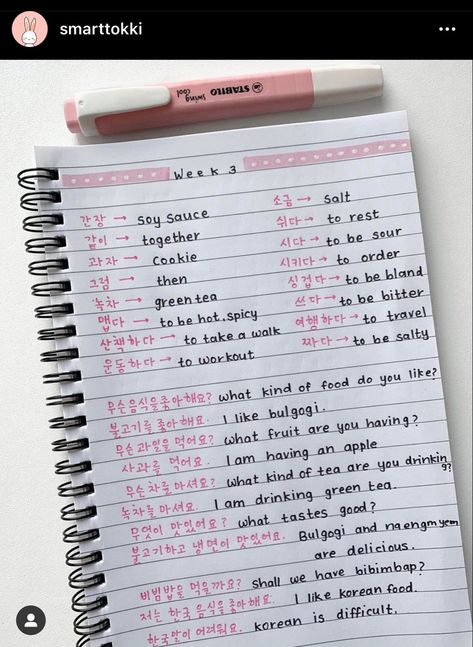 smarttokki
STABILO
swing cool
Week 3
간장 → soy sauce
같이 → together
과자 → cookie
그럼 → then
녹차 → green tea
맵다 → to be hot, spicy
산책하다 → to take a walk
운동하다 → to workout
소금 → salt
쉬다 → to rest
시다 → to be sour
시키다 → to order
싱겁다 → to be bland
쓰다 → to be bitter
여행하다 → to travel
짜다 → to be salty
무슨음식을좋아해요? what kind of food do you like?
불고기를 좋아해요. I like bulgogi.
무슨과일을 먹어요? what fruit are you having?
사과를 먹어요. I am having an apple
무슨차를마셔요? what kind of tea are you drinking?
녹차를 마셔요. I am drinking green tea.
무엇이 맛있어요? what tastes good?
불고기하고 냉면이 맛있어요. Bulgogi and naengmyeon
are delicious.
비빔밥을 먹을까요? shall we have bibimbap?
저는 한국 음식을좋아해요. I like korean food.
한국말이 어려워요. korean is difficult.